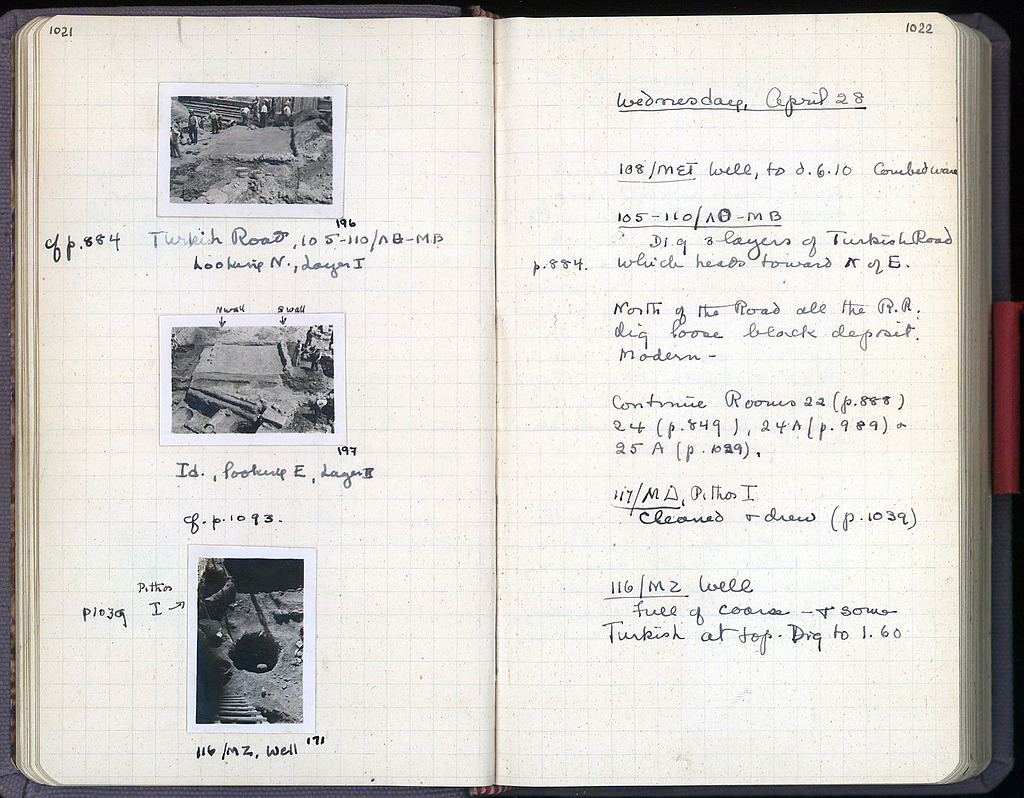 1021
196
cf p. 884 Turkish Road, 105-110/ΛΘ-ΜΒ
Looking N., Layer I
N wall S wall
197
Id., looking E, Layer II
cf. p. 1093.
Pithos
p1039 I →
116/ΜΖ, Well 171
1022
Wednesday, April 28
108/ΜΣΤ Well, to d. 6.10 Combed ware
105-110/ΛΘ-ΜΒ
Dig 3 layers of Turkish Road
p. 884. which heads toward N of E.
North of the Road all the R.R.
dig loose black deposit.
Modern -
Continue Rooms 22 (p. 888)
24 (p. 849), 24A (p. 989) &
25 A (p. 1029).
117/ΜΔ, Pithos I
Cleaned & drew (p. 1039)
116/ΜΖ Well
Full of coarse - & some
Turkish at top. Dig to 1.60